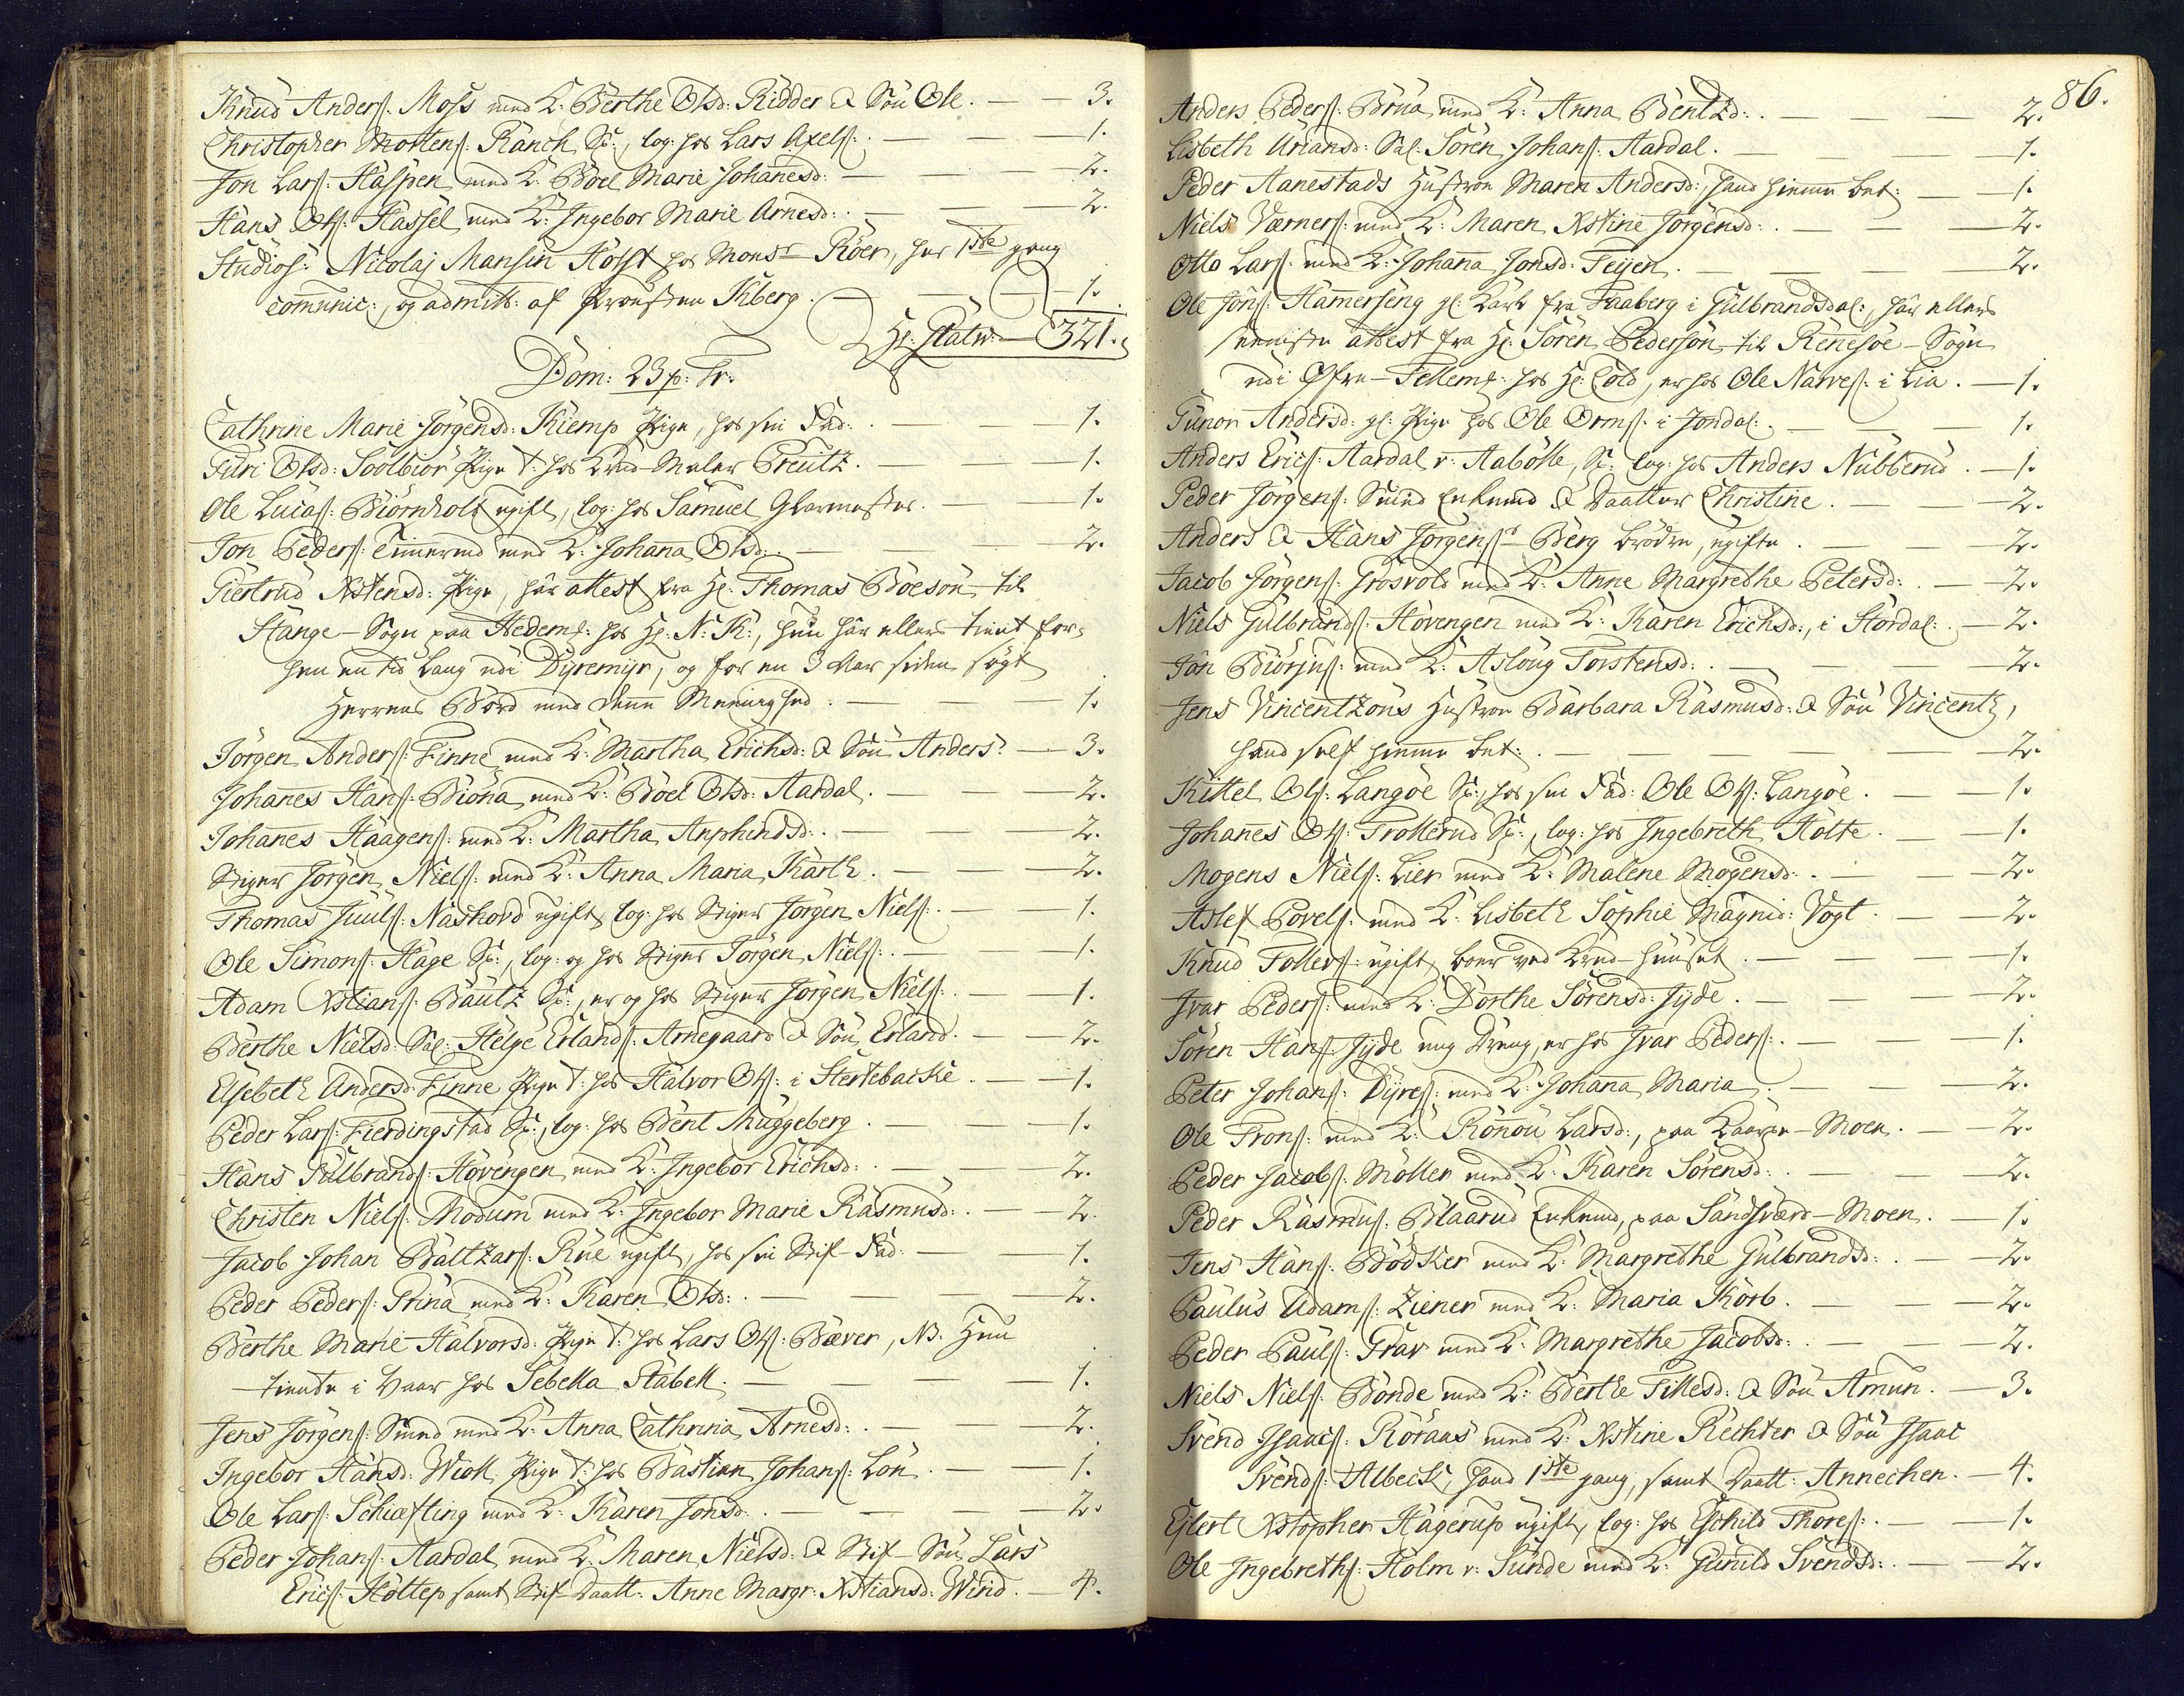 Knud Anders: Moss med K: Berthe Olsd: Ridder & Søn Ole. — — 3.
Christopher Mortens: Ranch Sp:, log: hos Lars Axels: — — 1.
Jon Lars: Haspen med K: Boel Marie Johanesd: — — 2.
Hans Ols: Hassel med K: Ingebor Marie Arnesd: — — 2.
Studios: Nicolaj Mansin Holst hos Monsr Röer, her 1ste gang
comunic:, og admitt: af Provsten Kiberg. — — 1.
Hr: Statw: — 321.
Dom: 23 p: Tr:
Cathrine Marie Jörgensd: Kiemp Pige, hos sin Fad: — — 1.
Turi Olsd: Soolbiör Pige t: hos Krud-Maler Treutz. — — 1.
Ole Lucas: Biörnholt ugift, log: hos Samuel Glarmester. — — 1.
Jon Peders: Timerud med K: Johana Olsd: — — 2.
Giertrud Xstensd: Pige, har attest fra Hr: Thomas Boesön til
Stange-Sogn paa Hedem: hos Hr: N: K:, hun har ellers tient for-
hen en tid lang udi Dyremyr, og for en 3 Aar siden sögt
Herrens Bord med denne Meenighed. — — 1.
Jörgen Anders: Finne med K: Martha Erichsd: & Søn Anders. — 3.
Johanes Hans: Biöna med K: Boel Olsd: Aardal. — — 2.
Johanes Haagens: med K: Martha Anphindsd: — — 2.
Stiger Jörgen Niels: med K: Anna Maria Karth. — — 2.
Thomas Juuls: Naskovd ugift, log: hos Stiger Jörgen Niels: — — 1.
Ole Simons: Hage Sp:, log: og hos Stiger Jörgen Niels: — — 1.
Adam Xstians: Bautz Sp:, er og hos Stiger Jörgen Niels: — — 1.
Berthe Nielsd: Sal: Helge Erlands: Arnegaard & Søn Erland. — 2.
Elsebeth Andersd: Finne Pige t: hos Halvor Ols: i Stertebacke. — 1.
Peder Lars: Fierdingstad Sp:, log: hos Bent Muggeberg. — — 1.
Hans Gulbrands: Hövengen med K: Ingebor Erichsd: — — 2.
Christen Niels: Modum med K: Ingebor Marie Rasmusd: — — 2.
Jacob Johan Baltzars: Rue ugift, hos sin Stif-Fad: — — 1.
Peder Peders: Prina med K: Karen Olsd: — — 2.
Berthe Marie Halvorsd: Pige t: hos Lars Ols: Bæver, NB. Hun
tiente i Vaar hos Sebella Stabell. — — 1.
Jens Jörgens: Smed med K: Anna Cathrina Arnesd: — — 2.
Ingebor Hansd: Wiok Pige t: hos Bastian Johans: Lön. — — 1.
Ole Lars: Schiefting med K: Karen Jonsd: — — 2.
Peder Johans: Aardal med K: Maren Nielsd: & Stif-Søn Lars
Erics: Holtep samt Stif-Daatt: Anne Margr: Xstiansd: Wind. — 4.
86.
Anders Peders: Brua med K: Anna Bentzd: — — 2.
Lisbeth Ariansd: Sal: Sören Johans: Aardal. — — 1.
Peder Aanestads Hustroe Maren Andersd:, hand hiemme bet: — 1.
Niels Værners: med K: Maren Xstine Jörgensd: — — 2.
Otto Lars: med K: Johana Jonsd: Teijen. — — 2.
Ole Jöns: Hamerseng gl: Karl fra Faaberg i Gulbrandsdal:, har ellers
seeniste attest fra Hr: Sören Pedersön til Renesöe-Sogn
udi Öfre-Tellem: hos Hr: Cold, er hos Ole Narves: i Lia. — 1.
Gunor Andersd: gl: Pige hos Ole Orms: i Jondal: — — 1.
Anders Erics: Aardal v: Aabölle, Sp: log: hos Anders Nubberud. — 1.
Peder Jörgens: Smed Enkemd & Daatter Christine. — — 2.
Anders & Hans Jörgens: Berg brödre, ugifte. — — 2.
Jacob Jörgens: Grosvold med K: Anne Margrethe Petersd: — 2.
Niels Gulbrands: Hövengen med K: Karen Erichsd:, i Stordal: — 2.
Jon Biörjus: med K: Aslöug Torstensd: — — 2.
Jens Vincentzöns Hustroe Barbara Rasmusd: & Søn Vincentz,
hand self hiemme bet: — — 2.
Kittel Ols: Langöe Sp:, hos sin Fad: Ole Ols: Langöe. — — 1.
Johanes Ols: Trollerud Sp:, log: hos Ingebreth Holte. — — 1.
Mogens Niels: Lier med K: Malene Mogensd: — — 2.
Aslef Povels: med K: Lisbeth Sophie Magnid: Vogt. — — 2.
Knud Tollevs: ugift, boer ved Krud-Huuset. — — 1.
Ivar Peders: med K: Dorthe Sörensd: Jyde. — — 2.
Sören Hans: Jyde ung Dreng, er hos Ivar Peders: — — 1.
Peter Johans: Dyres: med K: Johana Maria — — 2.
Ole Trons: med K: Rönou Larsd:, paa Kaaver-Moen. — — 2.
Peder Jacobs: Möller med K: Karen Sörensd: — — 2.
Peder Rasmus: Blaarud Enkemd, paa Sandsværd-Moen. — 1.
Jens Hans: Bödker med K: Margrethe Gulbrandsd: — — 2.
Paulus Adams: Ziener med K: Maria Korb. — — 2.
Peder Pauls: Grav med K: Margrethe Jacobsd: — — 2.
Niels Niels: Bonde med K: Berthe Tillesd: & Søn Amun. — 3.
Svend Isaacs: Röraas med K: Xstine Rechter & Søn Isaac
Svends: Albeck, hand 1ste gang, samt Daatt: Annechen. — 4.
Ejlert Xstopher Hagerup ugift, log: hos Eschild Thores: — — 1.
Ole Ingebreths: Holm v: Sunde med K: Gunild Svendsd: — — 2.